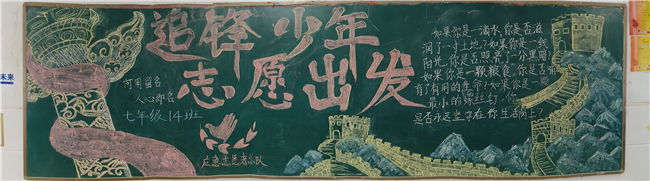 未来
追锋少年
志愿出发
何用留名
人心即名
七年级14班
应急志愿者小队
如果你是一滴水,你是否滋
润了一寸土地?如果你是一线
阳光,你是否照亮了一分黑暗?
如果你是一颗粮食,你是否哺
育了有用的生命?如果你是一颗
最小的螺丝钉,你
是否永远坚守在你生活岗上?